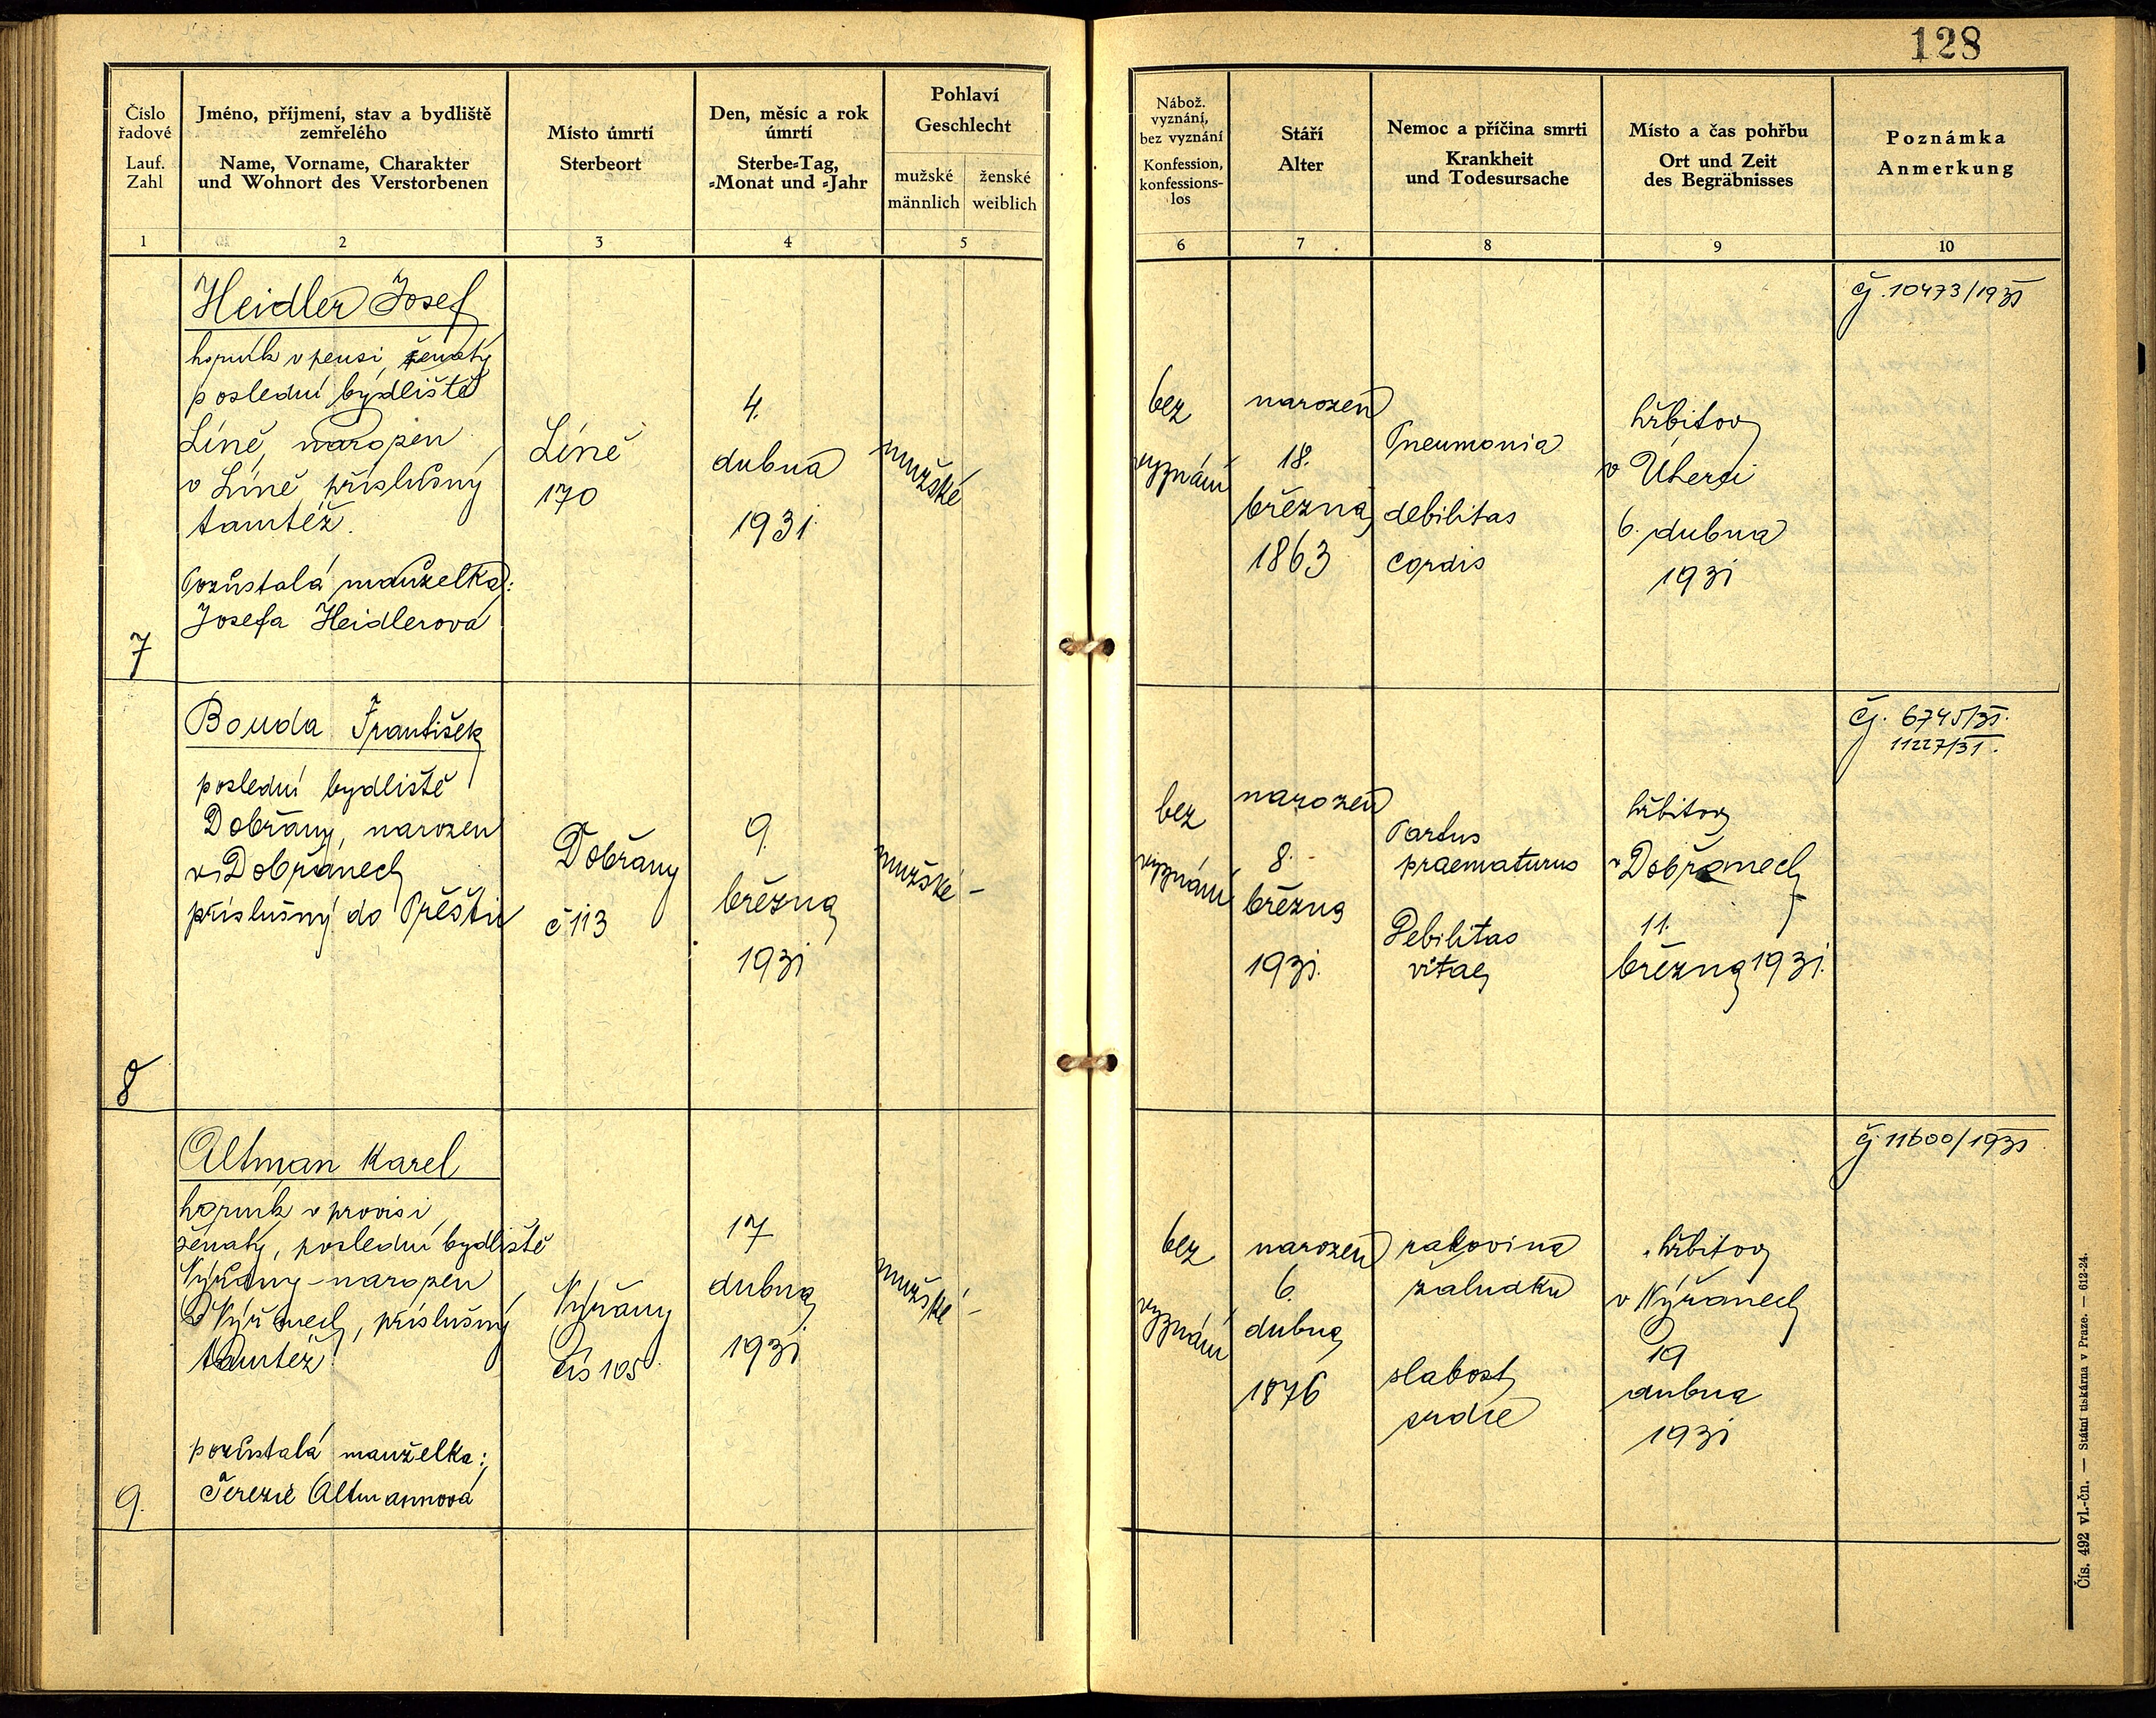 128
Číslo
řadové
Lauf.
Zahl
Jméno, příjmení, stav a bydliště
zemřelého
Name, Vorname, Charakter
und Wohnort des Verstorbenen
Místo úmrtí
Sterbeort
Den, měsíc a rok
úmrtí
Sterbe=Tag,
=Monat und =Jahr
Pohlaví
Geschlecht
mužské
männlich
ženské
weiblich
Nábož.
vyznání,
bez vyznání
Konfession,
konfessions-
los
Stáří
Alter
Nemoc a příčina smrti
Krankheit
und Todesursache
Místo a čas pohřbu
Ort und Zeit
des Begräbnisses
Poznámka
Anmerkung
1 2 3 4 5 6 7 8 9 10
7
Heidler Josef
horník v pensi, ženatý
poslední bydliště
Líně, narozen
v Líně, příslušný
tamtéž.
Pozůstalá manželka:
Josefa Heidlerová
Líně
170
4.
dubna
1931
mužské
bez
vyznání
narozen
18.
března
1863
Pneumonia
debilitas
cordis
hřbitov
v Úherci
6. dubna
1931
čj. 10473/1931
8
Bouda František
poslední bydliště
Dobřany, narozen
v Dobřanech
příslušný do Přeštic
Dobřany
č 113
9.
března
1931
mužské -
bez
vyznání
narozen
8.
března
1931.
Partus
praematurus
Debilitas
vitae
hřbitov
v Dobřanech
11.
března 1931.
čj. 6745/31.
11227/31.
9.
Altman Karel
horník v provisi,
ženatý, poslední bydliště
Nýřany - narozen
v Nýřanech, příslušný
tamtéž.
pozůstalá manželka:
Terezie Altmannová
Nýřany
čís 105
17
dubna
1931
mužské -
bez
vyznání
narozen
6.
dubna
1876
rakovina
žaludku
slabost
srdce
hřbitov
v Nýřanech
19
dubna
1931
čj 11600/1931
Čís. 492 vl.-čn. — Státní tiskárna v Praze. — 612-24.